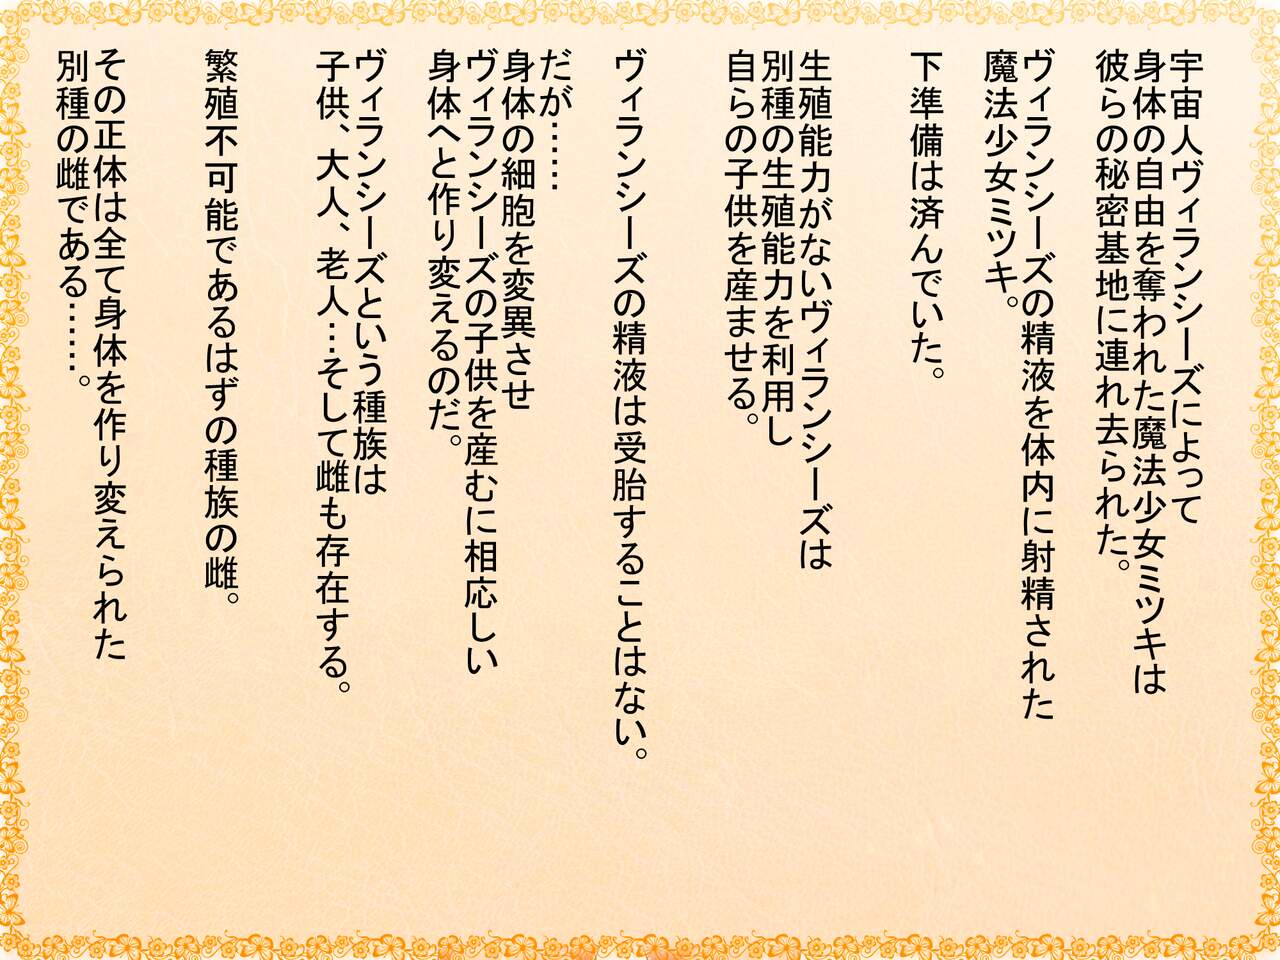 宇宙人ヴィランシーズによって
身体の自由を奪われた魔法少女ミツキは
彼らの秘密基地に連れ去られた。
ヴィランシーズの精液を体内に射精された
魔法少女ミツキ。
下準備は済んでいた。
生殖能力がないヴィランシーズは
別種の生殖能力を利用し
自らの子供を産ませる。
ヴィランシーズの精液は受胎することはない。
だが……
身体の細胞を変異させ
ヴィランシーズの子供を産むに相応しい
身体へと作り変えるのだ。
ヴィランシーズという種族は
子供、大人、老人…そして雌も存在する。
繁殖不可能であるはずの種族の雌。
その正体は全て身体を作り変えられた
別種の雌である……。